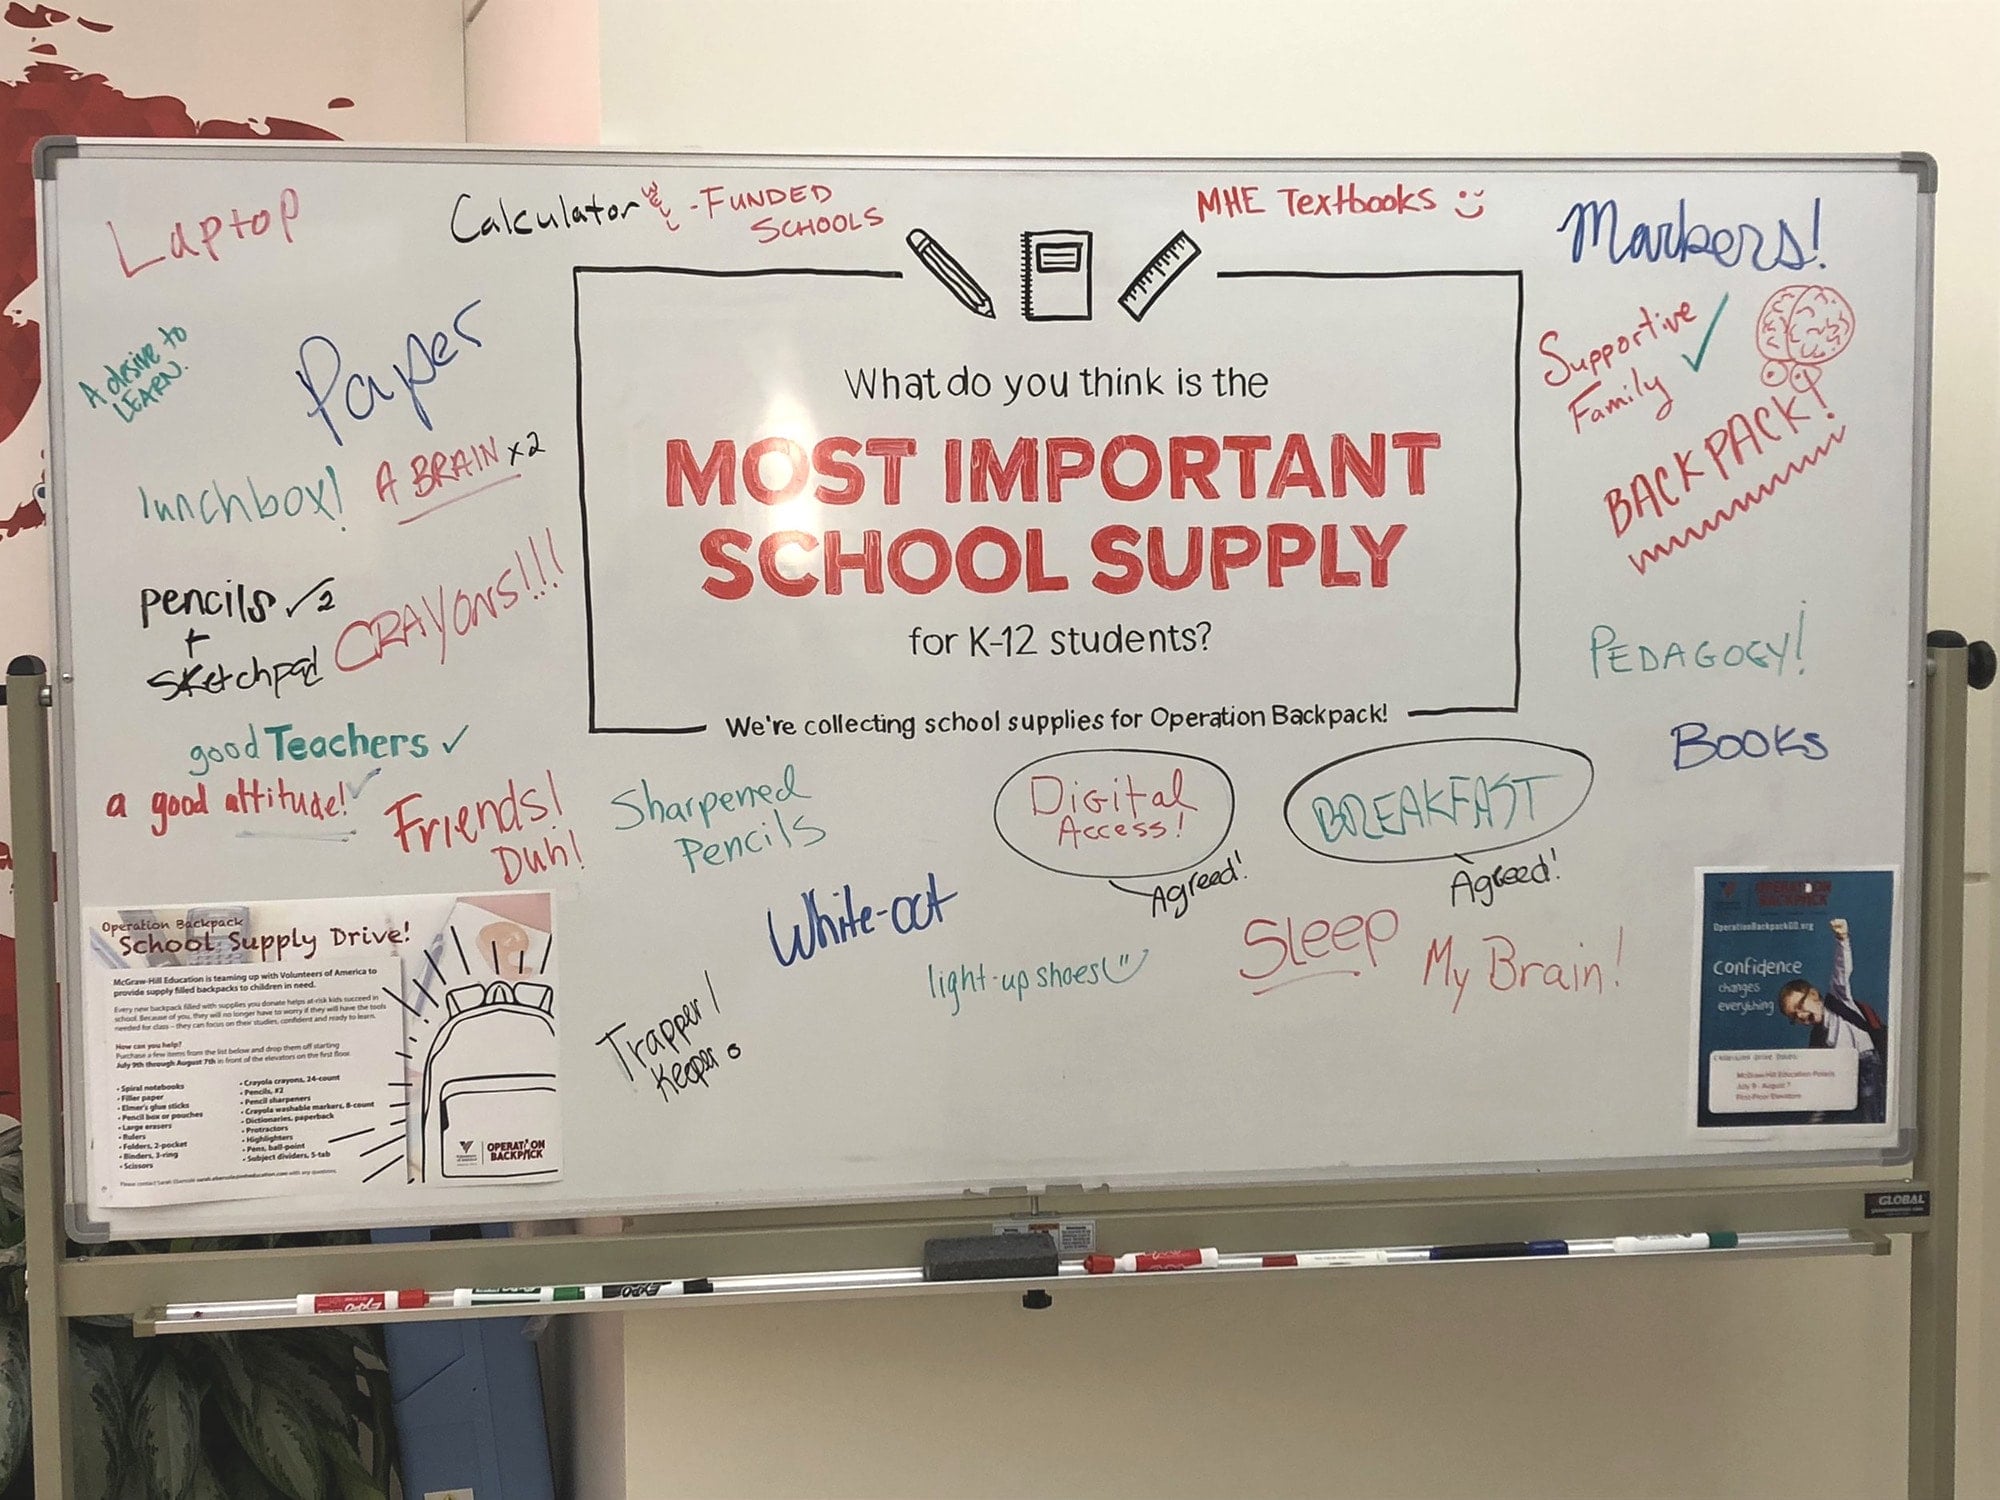 Laptop
Calculator
WELL-FUNDED
SCHOOLS
MHE Textbooks
Markers!
A desire to
LEARN.
Paper
Supportive ✓
Family
BACKPACK!
lunchbox!
A BRAIN x2
What do you think is the
MOST IMPORTANT
SCHOOL SUPPLY
for K-12 students?
We're collecting school supplies for Operation Backpack!
pencils ✓2
+
sketchpad
CRAYONS!!!
PEDAGOGY!
BOOKS
good Teachers ✓
a good attitude! ✓
Friends!
Duh!
Sharpened
Pencils
Digital
Access!
Agreed!
BREAKFAST
Agreed!
White-out
light-up shoes
Sleep
My Brain!
Trapper
Keeper!
Operation Backpack
School Supply Drive!
McGraw-Hill Education is teaming up with Volunteers of America to
provide supply filled backpacks to children in need.
Every new backpack filled with supplies you donate helps at-risk kids succeed in
school. Because of you, they will no longer have to worry if they will have the tools
needed for class – they can focus on their studies, confident and ready to learn.
How can you help?
Purchase a few items from the list below and drop them off starting
July 9th through August 7th in front of the elevators on the first floor.
• Spiral notebooks
• Filler paper
• Elmer's glue sticks
• Pencil box or pouches
• Large erasers
• Rulers
• Folders, 2-pocket
• Binders, 3-ring
• Scissors
• Crayola crayons, 24-count
• Pencils, #2
• Pencil sharpeners
• Crayola washable markers, 8-count
• Dictionaries, paperback
• Protractors
• Highlighters
• Pens, ball-point
• Subject dividers, 5-tab
Please contact Sarah with any questions.
Volunteers
of America
OPERATION
BACKPACK
OPERATION
BACKPACK
OperationBackpackGO.org
Confidence
changes
everything
McGraw-Hill Education Polaris
July 9 - August 7
First-Floor Elevators
GLOBAL
EXPO
EXPO